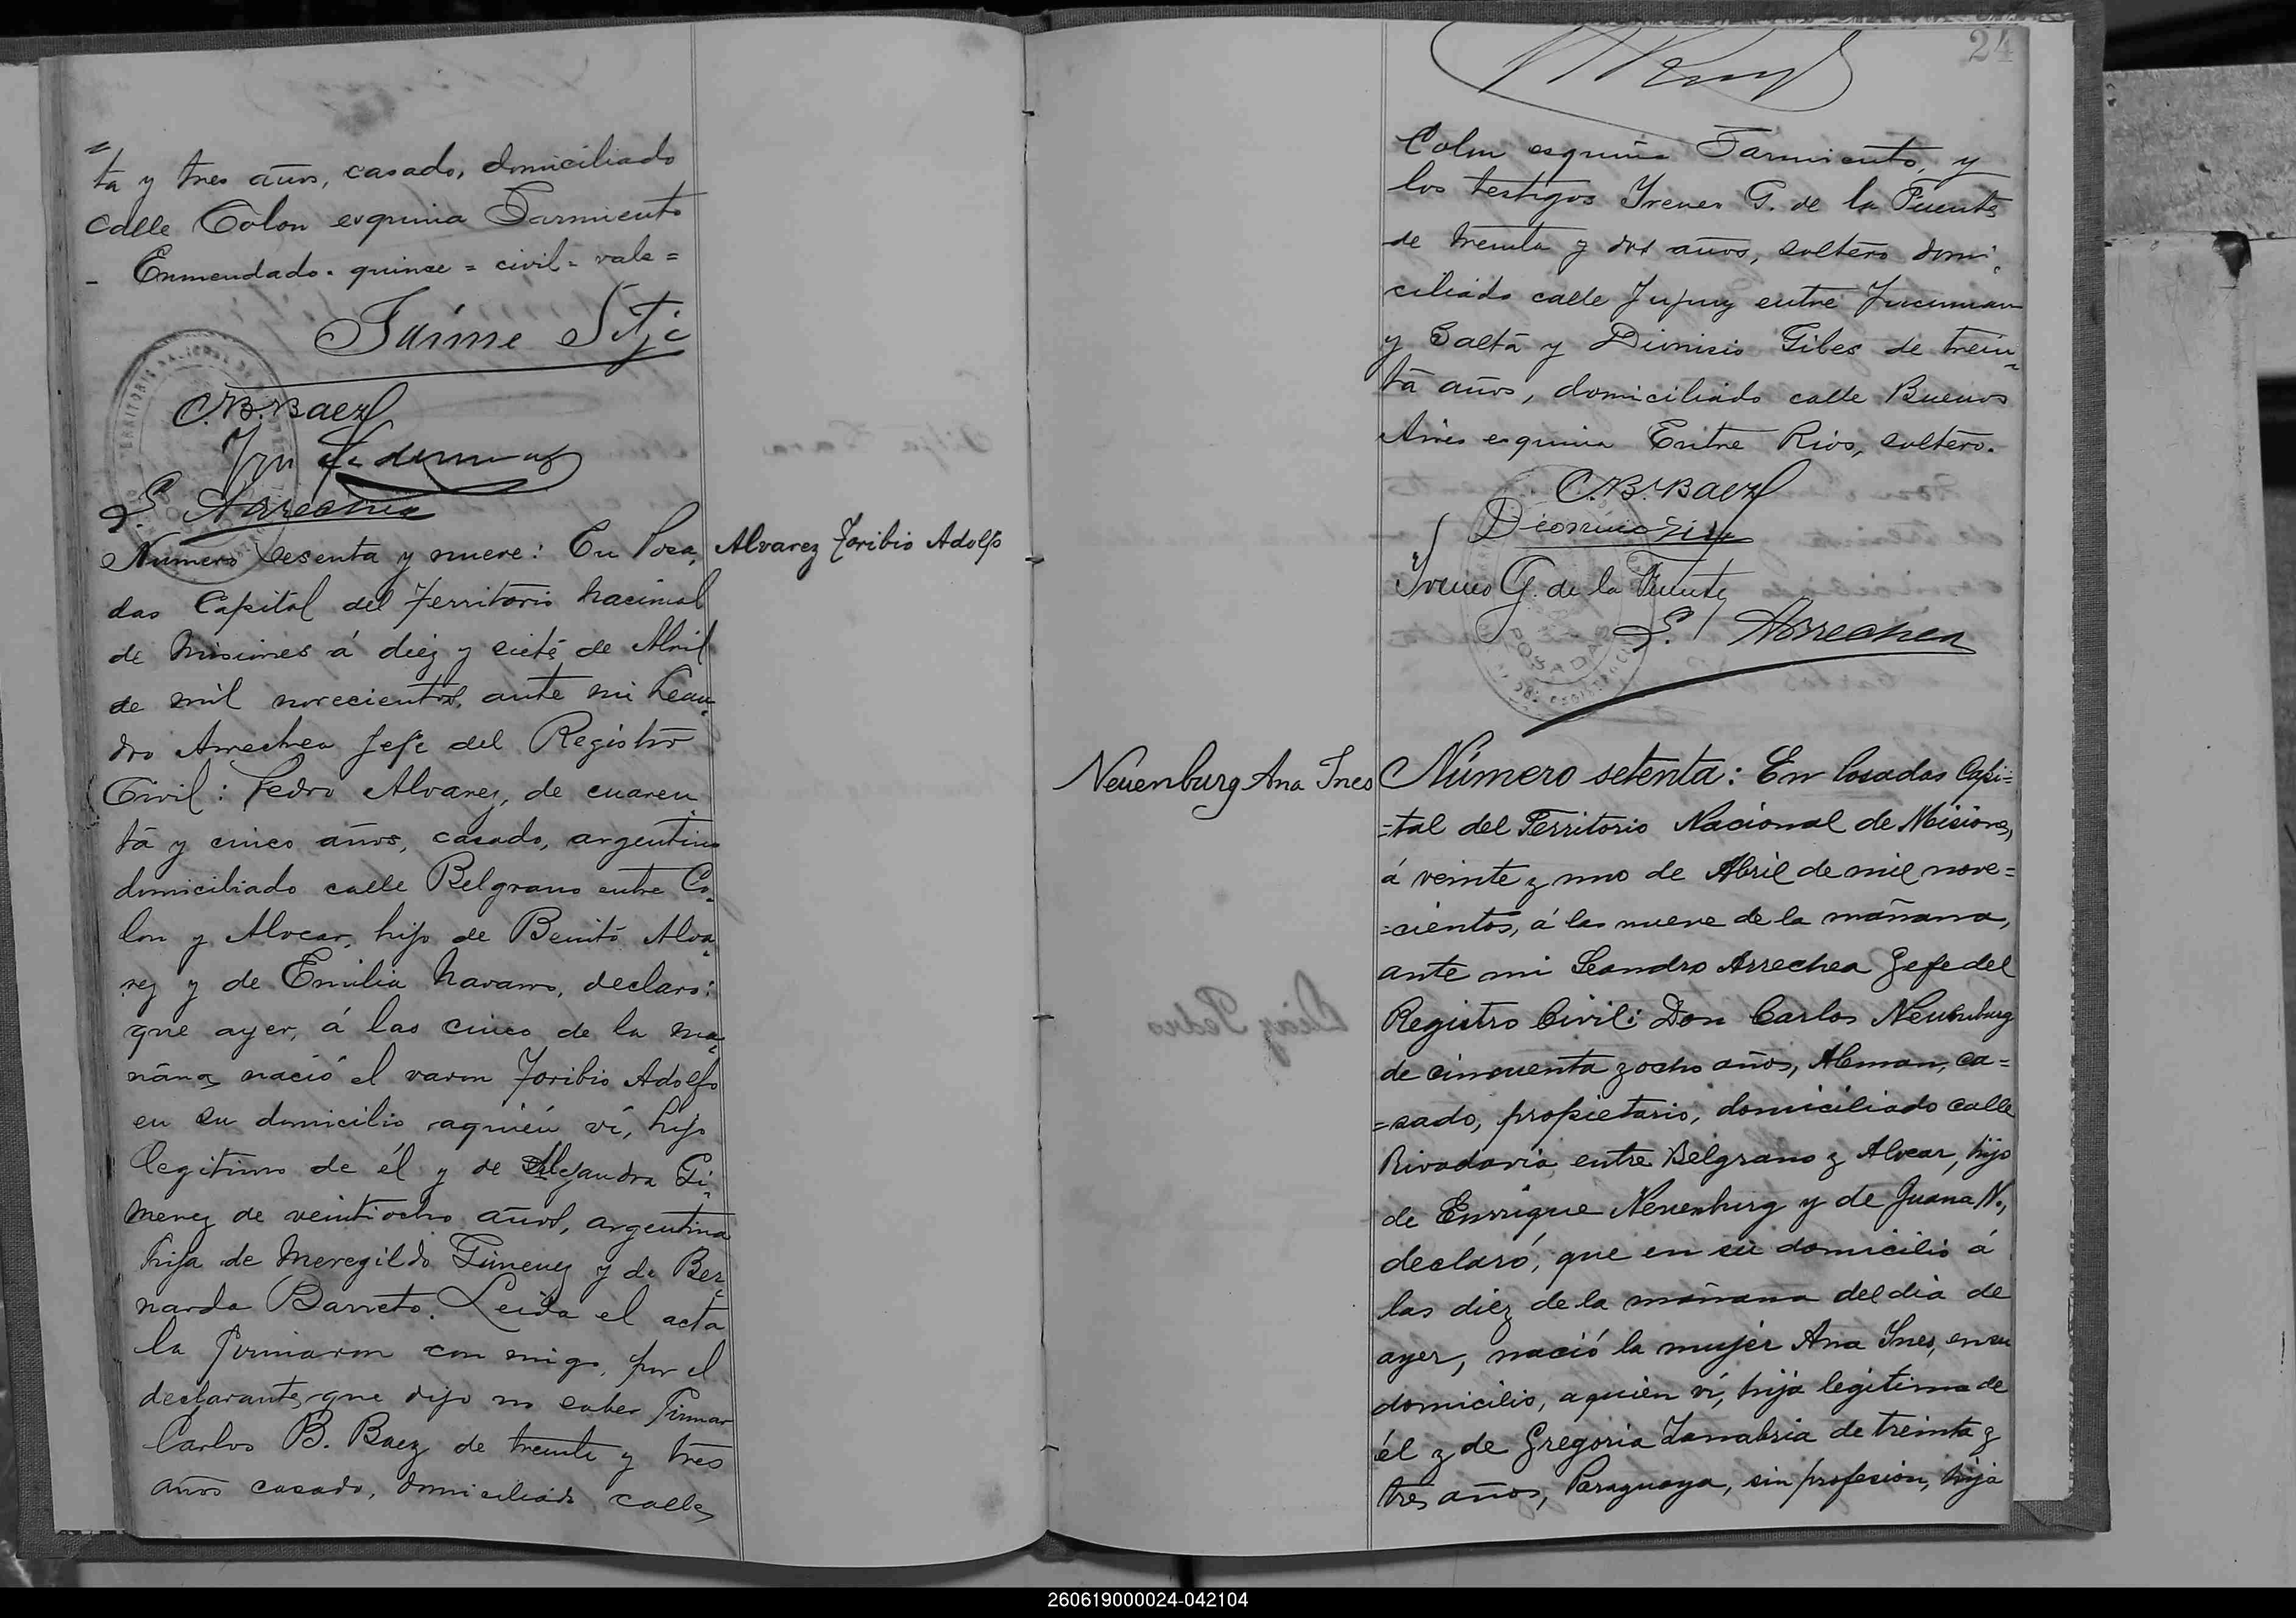 ta y tres años, casado, domiciliado
calle Colon esquina Sarmiento
- Enmendado = quince = civil = vale =
Jaime Sitja
C.B. Baez
L. Arrechea
Numero sesenta y nueve: En Posa,
Alvarez Toribio Adolfo
das Capital del Territorio Nacional
de Misiones á diez y siete de Abril
de mil novecientos, ante mi Lean-
dro Arrechea Jefe del Registro
Civil: Pedro Alvarez, de cuaren
ta y cinco años, casado, argentino
domiciliado calle Belgrano entre Co-
lon y Alvear, hijo de Benito Alva-
rez y de Emilia Navarro, declaro:
que ayer, á las cinco de la ma-
ñana nació el varon Toribio Adolfo
en su domicilio aquién ví, hijo
legitimo de él y de Alejandra Gi-
menez de veintiocho años, argentina
hija de Meregildo Gimenez y de Ber-
narda Barreto. Leida el acta
la firmaron con migo, por el
declarante, que dijo no saber firmar
Carlos B. Baez de treinta y tres
años casado, domiciliado calle
24
Colon esquina Sarmiento, y
los testigos Ireneo G. de la Fuente
de treinta y dos años, soltero domi-
ciliado calle Jujuy entre Tucuman
y Salta y Dionisio Gibes de trein-
ta años, domiciliado calle Buenos
Aires esquina Entre Rios, soltero.
C.B. Baez
Ireneo G. de la Fuente
L. Arrechea
POSADAS
Neuenburg Ana Ines
Número setenta: En Posadas Capi=
=tal del Territorio Nacional de Misiones,
á veinte y uno de Abril de mil nove=
=cientos, á las nueve de la mañana,
ante mi Leandro Arrechea Gefe del
Registro Civil: Don Carlos Neuenburg
de cincuenta y ocho años, Aleman, ca=
=sado, propietario, domiciliado calle
Rivadavia entre Belgrano y Alvear, hijo
de Enrrique Neuenburg y de Juana N.,
declaró, que en su domicilio á
las diez de la mañana del dia de
ayer, nació la mujer Ana Ines, en su
domicilio, aquién ví, hija legitima de
él y de Gregoria Zanabria de treinta y
tres años, Paraguaya, sin profesion, hija
260619000024-042104